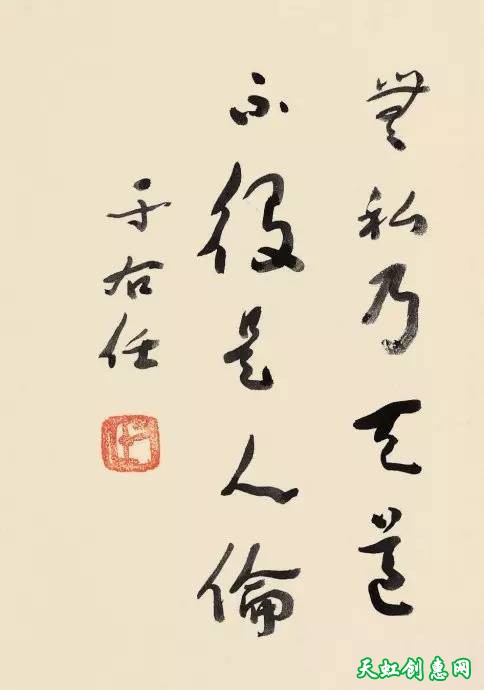 無私乃天道
不役是人倫
于右任
天虹创惠网